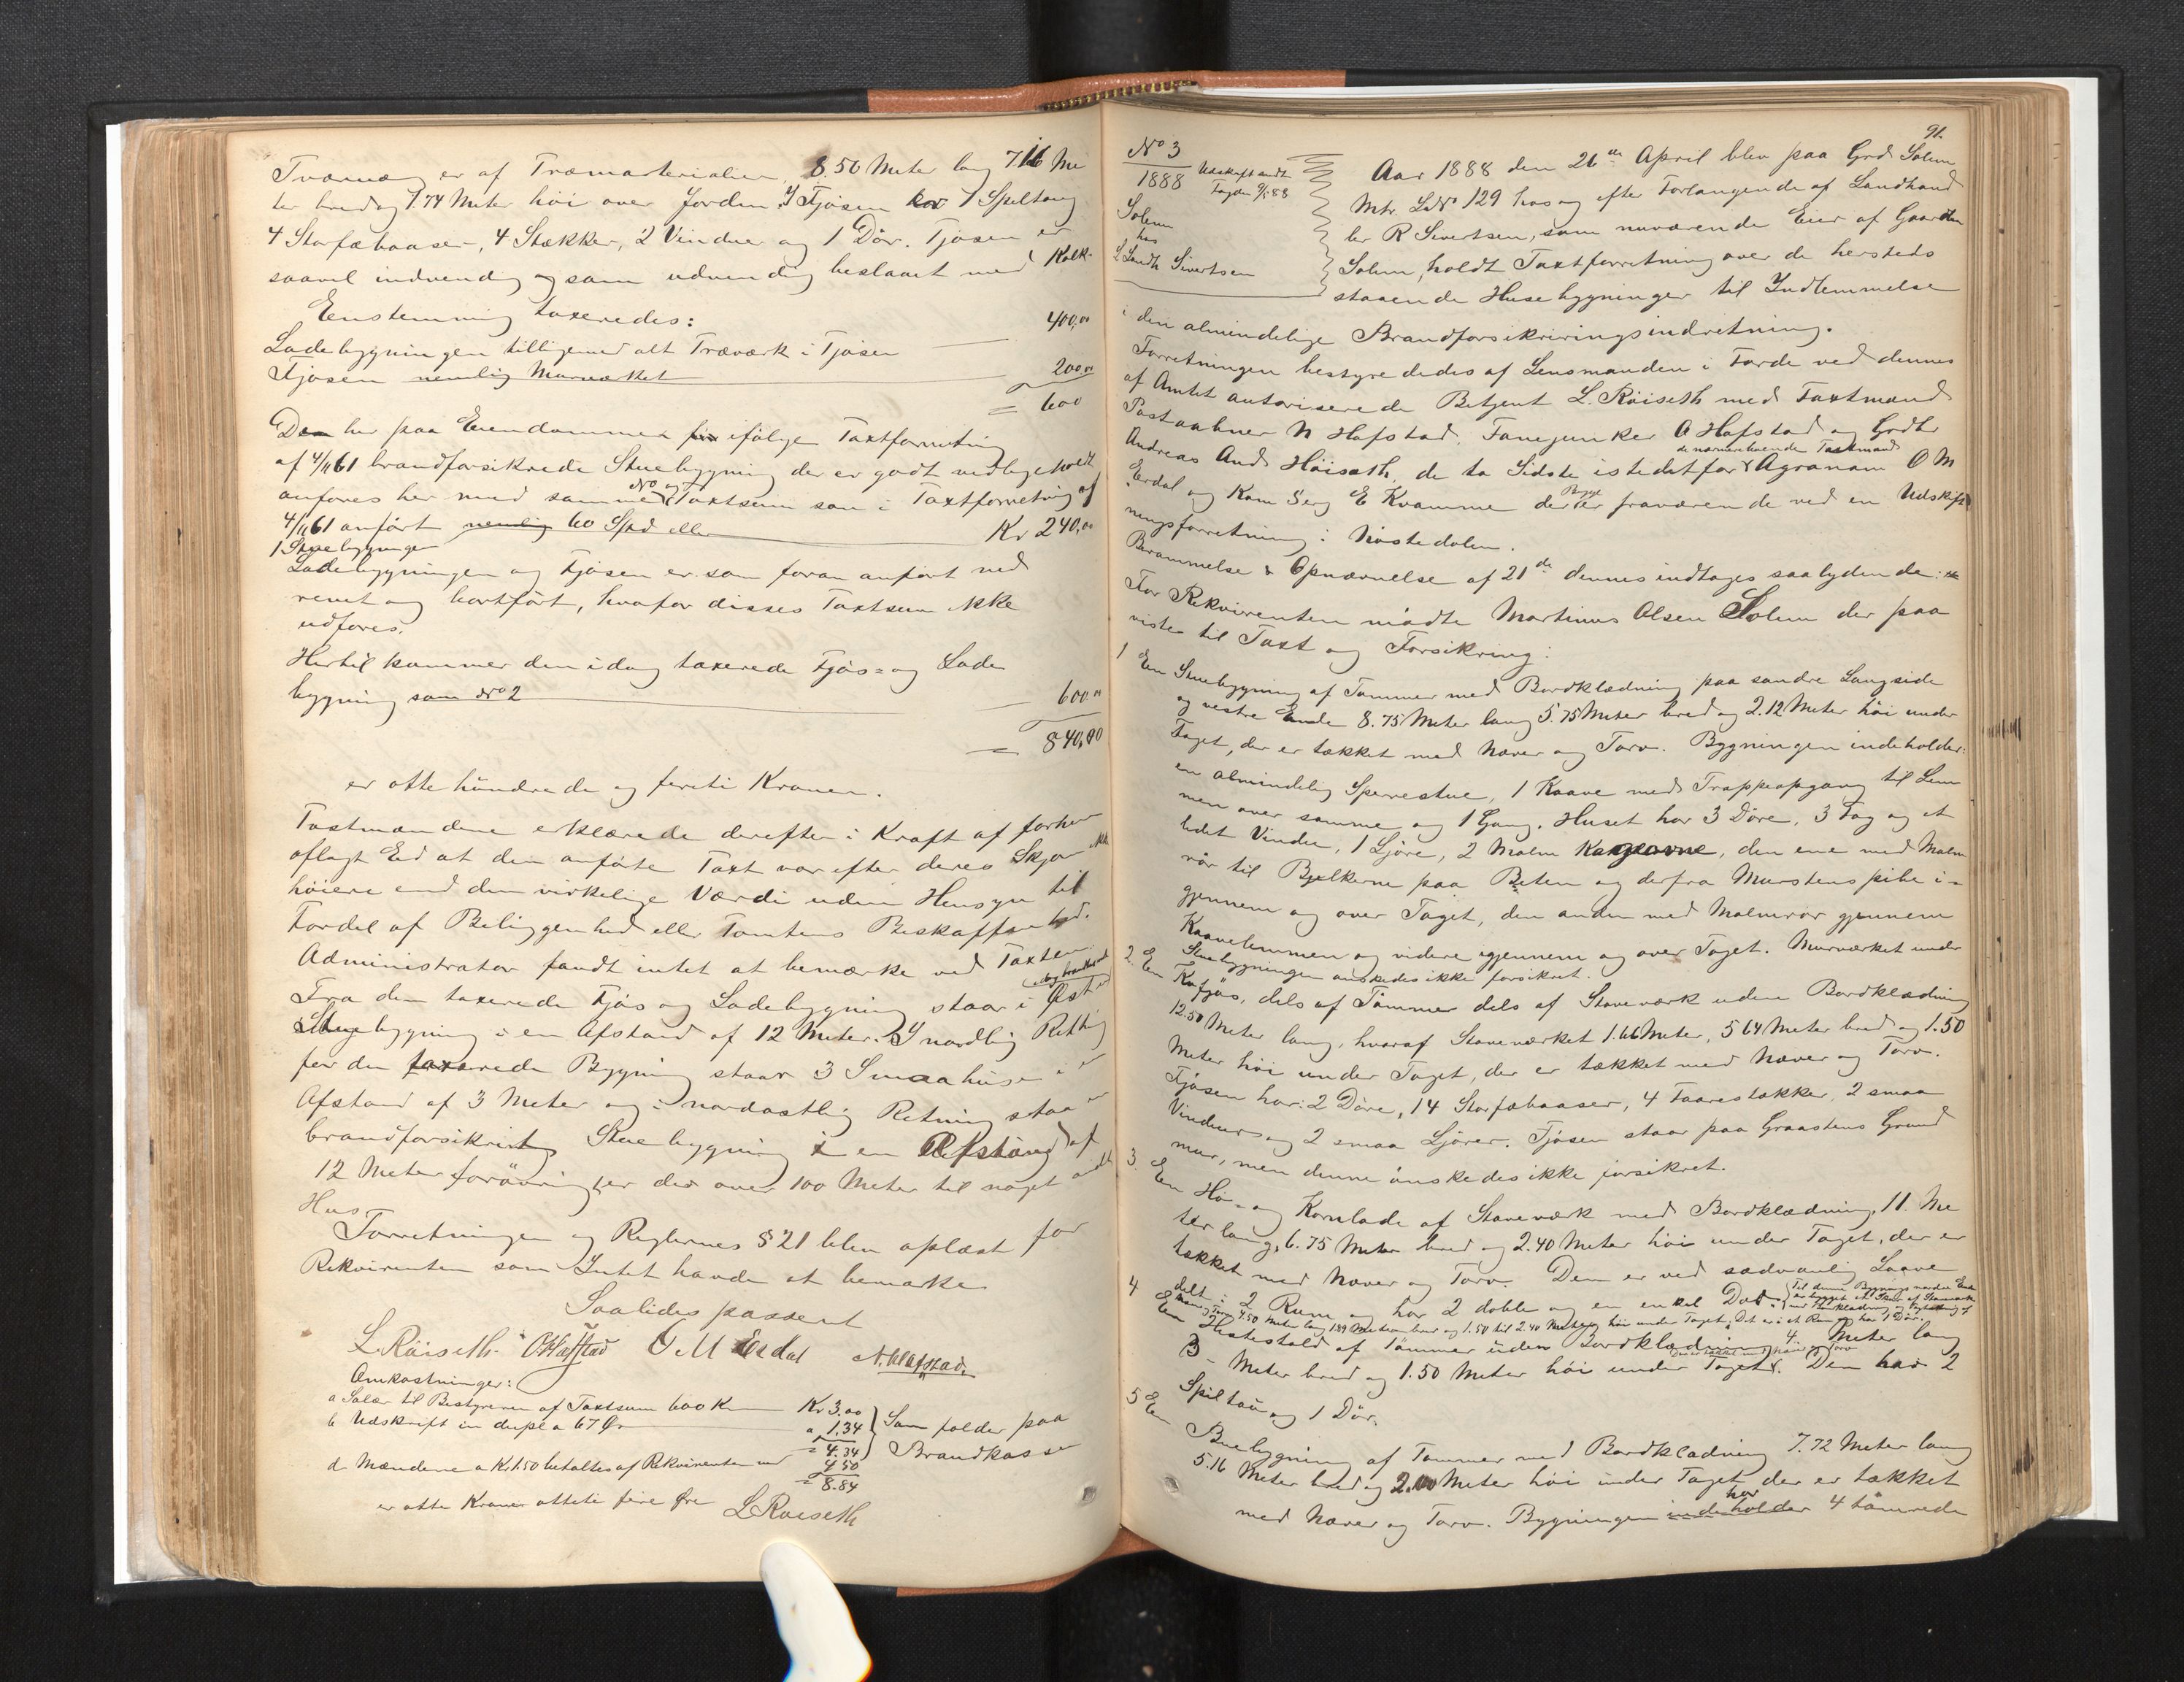 Tværvæg er af Træmaterialier, 8.50 Meter lang 7.16 Me
ter bred og 7.74 Meter höi over Jorden. I Fjösen er 1 Speltoug
4 Storfæbaaser, 4 Stækker, 2 Vinduer og 1 Dör. Fjösen er
saavel indvendig og som udvendig beslaaet med Kalk.
Eenstemmig taxeredes:
Ladebygningen tilligemed alt Træværk i Fjösen 400,00
Fjösen nemlig Murværket 200,00
= 600
Den her paa Eiendommen ifölge Taxtforretning
af 4/11 61 brandforsikrede Stuebygning der er godt vedligeholdt
anföres her med samme No og Taxtsum som i Taxtforretning af
4/11 61 anfört nemlig 60 Spd eller Kr 240,00
1 Stuebygningen
Ladebygningen og Fjösen er som foran anfört ned
revet og bortfört, hvorfor disses Taxtsum ikke
udföres.
Hertil kommer den idag taxerede Fjös= og Lade
bygning som No 2 600,00
= 840,00
er otte hundrede og førti Kroner.
Taxtmændene erklærede derefter i Kraft af forhen
aflagt Eed at den anförte Taxt var efter deres Skjön ikke
höiere end den virkelige Værdi uden Hensyn til
Fordel af Beliggenhed eller Tomtens Beskaffenhed.
Administrator fandt intet at bemærke ved Taxten.
Fra den taxerede Fjös og Ladebygning staar i Öst
Stuebygning i en Afstand af 12 Meter. I nordlig Retning
for den taxerede Bygning staar 3 Smaahuse i en
Afstand af 3 Meter og i nordöstlig Retning staar
brandforsikrert Stuebygning i en Afstand af
12 Meter forövrig er der over 100 Meter til noget andet
Hus.
Forretningen og Reglernes § 21 blev oplæst for
Rekvirenten som Intet havde at bemærke
Saaledes passert
L. Röiseth. O Hafstad O M Erdal N. Hafstad.
Omkostninger:
a Salær til Bestyreren af Taxtsum 600 Kr Kr 3.00
b Udskrift in dupl a 67 Ör 1.34
= 4.34
Som falder paa
Brandkassen
d Mændene a Kr 1.50 betaltes af Rekvirenten med 4 50
= 8.84
er otte Kroner ottiti fire Øre
L Roiseth
91.
No 3
1888
Udskrift sendt
Fogden 9/5 88
Solem
hos
Landh Sivertsen
Aar 1888 den 26de April blev paa Grd Solem
Mtr. LNo 129 hos og efter Forlangende af Landhand
ler R Sivertsen, som nuværende Eier af Gaarden
Solem, holdt Taxtforretning over de hersteds
staaende Husebygninger til Indlemmelse
i den almindelige Brandforsikringsindretning.
Forretningen bestyrededes af Lensmanden i Förde ved dennes
af Amtet autoriserede Betjent L. Röiseth med Taxtmænd
Postaabner N Hafstad, Fanejunker O Hafstad og Grdbr
Andreas Ands Höiseth, de to Sidste istedetfor de nærmestboende Taxtmænd Agronom O M
Erdal og Kom Serg E Kvamme der Begge er fraværende ved en Udskift
ningsforretning i Haastedalen.
Berammelse & Opnævnelse af 21de dennes indtages saalydende:
For Rekvirenten mödte Martinus Olsen Solem der paa
viste til Taxt og Forsikring:
1 Een Stuebygning af Tømmer med Bordklædning paa söndre Langside
og vestre Ende 8.75 Meter lang 5.75 Meter bred og 2.12 Meter höi under
Taget, der er tækket med Næver og Torv. Bygningen indeholder:
en almindelig Sperrestue, 1 Kaave med Trappeopgang til Lem
men over samme og 1 Gang. Huset har 3 Döre, 3 Fag og et
ledet Vindu, 1 Ljöre, 2 Malm Kogeovne, den ene med Malm
rör til Bjelkerne paa Beten og derfra Murstens pibe i-
gjennem og over Taget, den anden med Malmrör gjennem
Kaavelemmen og videre igjennem og over Taget. Murværket under
Stuebygningen önskedes ikke forsikret.
2. Een Kofjös, dels af Tömmer dels af Staveværk uden Bordklædning
12.50 Meter lang, hvoraf Staveværket 1.66 Meter, 5 64 Meter bred og 1.50
Meter höi under Taget, der er tækket med Næver og Torv.
Fjösen har: 2 Döre, 14 Storfæbaaser, 4 Faarestækker, 2 smaa
Vinduer og 2 smaa Ljörer. Fjösen staar paa Graastens Grund
mur, men denne önskedes ikke forsikret.
3. Een Hö= og Kornlade af Staveværk med Bordklædning, 11. Me
ter lang, 6.75 Meter bred og 2.40 Meter höi under Taget, der er
tækket med Næver og Torv. Den er ved sædvanlig Laave
delt i 2 Rum og har 2 doble og en enkel Dör. Til denne Bygnings nordre Ende
er bygget et Skur af Staveværk
med Bordklædning og
Torv 4.50 Meter lang 1.89 Meter bred og 1.50 til 2.40 Meter höi under Taget. Det er i et Rum og har 1 Dör.
4 Een Hestestald af Tömmer uden Bordklædning 4. Meter lang
3 Meter bred og 1.50 Meter höi under Taget der er tækket med Næver og Torv. Den har 2
Spiltau og 1 Dör.
5 Een Buebygning af Tømmer med Bordklædning 7.72 Meter lang
5.16 Meter bred og 2.00 Meter höi under Taget der er tækket
med Næver og Torv. Bygningen indeholder har 4 tömrede